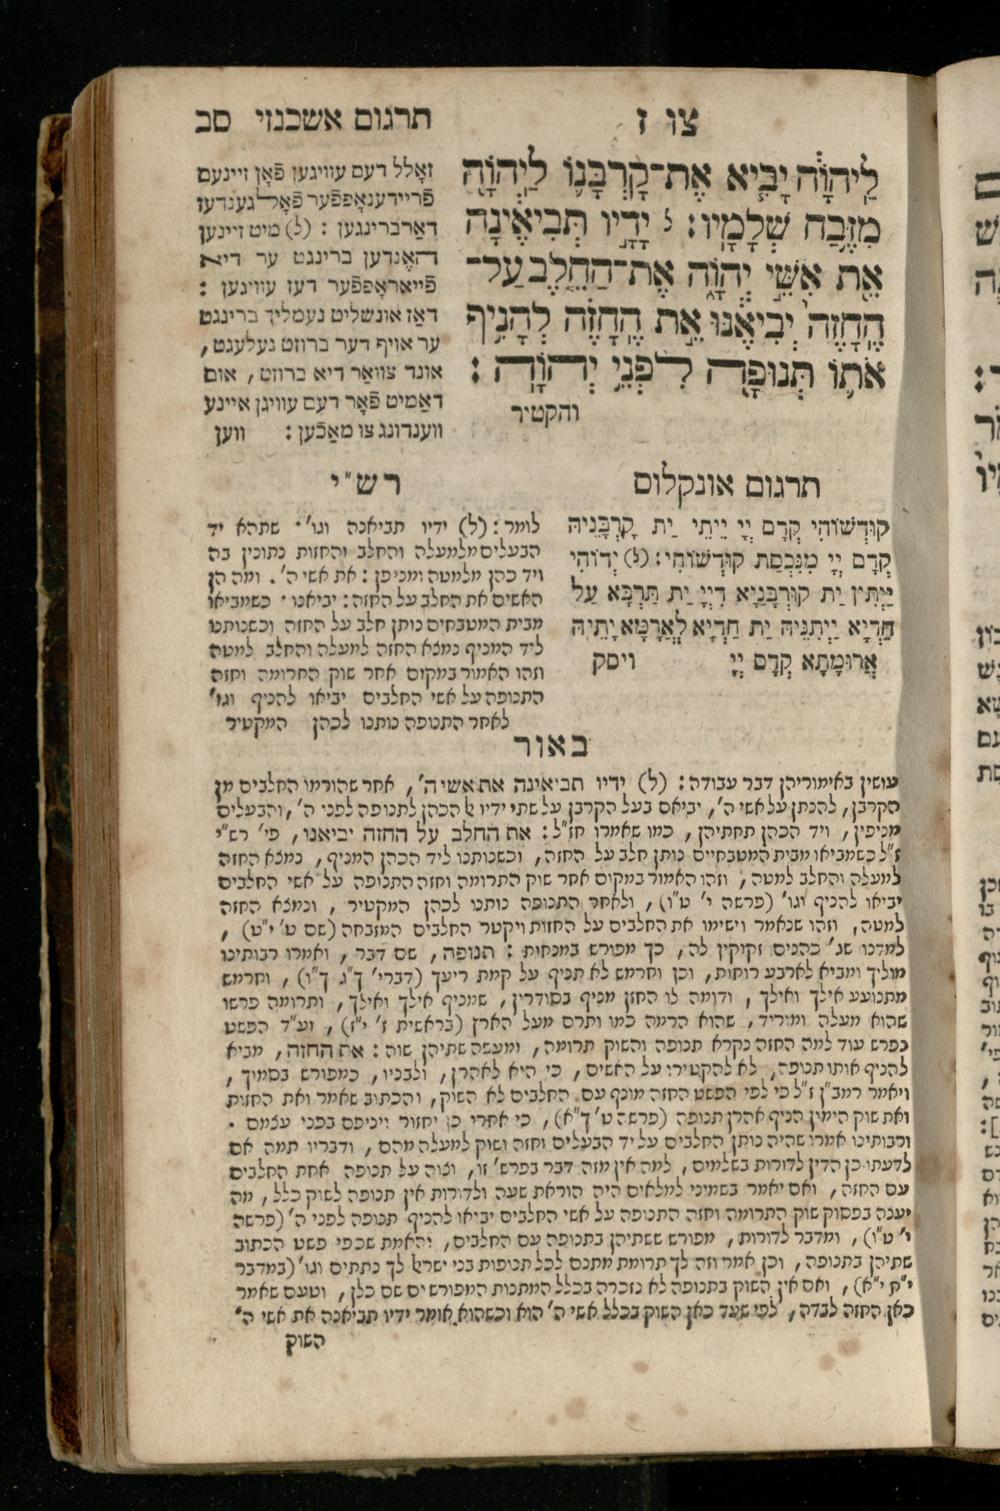 צו ז
תרגום אשכנזי סב
לַיהוָֹה יָבִיא אֶת־קָרְבָּנוֹ לַיְהוָֹה
מִזֶּבַח שְׁלָמָיו : ל יָדָיו תְּבִיאֶינָה
אֵת אִשֵּׁי יְהוָֹה אֶת־הַחֵלֶב עַל־
הֶחָזֶה יְבִיאֶנּוּ אֵת הֶחָזֶה לְהָנִיף
אֹתוֹ תְּנוּפָה לִפְנֵי יְהוָֹה :
והקטיר
זאָלל דעם עוויגען פֿאָן זיינעם
פֿריידענאָפּפֿער פֿאָללגענדעו
דאַרברינגען : (ל) מיט זיינען
האֶנדען ברינגט ער דיא
פֿייאראָפּפֿער דעז עוויגען :
דאַז אונשליט נעמליך ברינגט
ער אויף דער ברוזט געלעגט,
אונד צוואַר דיא ברוזט, אום
דאַמיט פֿאָר דעם עוויגן איינע
ווענדונג צו מאַכֿען : ווען
תרגום אונקלוס
קוּדְשׁוֹהִי קֳדָם יְיָ יַיְתֵי יַת קָרְבָּנֵיהּ
קֳדָם יְיָ מִנִּכְסַת קוּדְשׁוֹהִי : (ל) יְדוֹהִי
יַיְתְּיָן יַת קוּרְבָּנַיָּא דַיְיָ יַת תַּרְבָּא עַל
חַדְיָא יַיְתִנֵּיהּ יַת חַדְיָא לְאֲרָמָא יָתֵיהּ
אֲרוּמָתָא קֳדָם יְיָ ויסק
רש"י
לומר : (ל) ידיו תביאנה וגו' · שתהא יד
הבעלים מלמעלה והחלב והחזות נתונין בה
ויד כהן מלמטה ומניפן : את אשי ה' . ומה הן
האשים את החלב על החזה : יביאנו · כשמביאו
מבית המטבחים נותן חלב על החזה וכשנותנו
ליד המניף נמצא החזה למעלה והחלב למטה
וזהו האמור במקום אחר שוק התרומה וחזה
התנופה על אשי החלבים יביאו להניף וגו'
לאחר התנופה נותנו לכהן המקטיר
באור
עושין באימוריהן דבר עבודה : (ל) ידיו תביאינה את אשי ה', אחר שהורמו החלבים מן
הקרבן, להנתן על אשי ה', יביאם בעל הקרבן על שתי ידיו אל הכהן לתנופה לפני ה', והבעלים
מניפין, ויד הכהן תחתיהן, כמו שאמרו חז"ל : את החלב על החזה יביאנו, פי' רש"י
ז"ל כשמביאו מבית המטבחיים נותן חלב על החזה, וכשנותנו ליד הכהן המניף, נמצא החזה
למעלה והחלב למטה, וזהו האמור במקום אחר שוק התרומה וחזה התנופה על אשי החלבים
יביאו להניף וגו' (פרשה י' ט"ו), ולאחר התנופה נותנו לכהן המקטיר, ונמצא החזה
למטה, וזהו שנאמר וישימו את החלבים על החזות ויקטר החלבים המזבחה (שם ט' י"ט),
למדנו שג' כהנים זקוקין לה, כך מפורש במנחות : תנופה, שם דבר, ואמרו רבותינו
מוליך ומביא לארבע רוחות, וכן וחרמש לא תניף על קמת ריעך (דברי' ך"ג ך"ו), וחרמש
מתנועע אילך ואילך, ודומה לו החזן מניף בסודרין, שמניף אילך ואילך, ותרומה פרשו
שהוא מעלה ומוריד, שהוא הרמה כמו ותרם מעל הארץ (בראשית ז' י"ז), וע"ד הפשט
נפרש עוד למה החזה נקרא תנופה והשוק תרומה, ומעשה שתיהן שוה : את החזה, מביא
להניף אותו תנופה, לא להקטירו על האשים, כי היא לאהרן, ולבניו, כמפורש בסמוך,
ויאמר רמב"ן ז"ל כי לפי הפשט החזה מונף עם החלבים לא השוק, והכתוב שאמר ואת החזות
ואת שוק הימין הניף אהרן תנופה (פרשה ט' ך"א), כי אחרי כן יחזור ויניפם בפני עצמם .
ורבותינו אמרו שהיה נותן החלבים על יד הבעלים וחזה ושוק למעלה מהם, ודבריו תמה אם
לדעתו כן הדין לדורות בשלמים, למה אין מזה דבר בפרש' זו, וצוה על תנופה אחת החלבים
עם החזה, ואם יאמר בשמיני למלאים היה הוראת שעה ולדורות אין תנופה לשוק כלל, מה
יענה בפסוק שוק התרומה וחזה התנופה על אשי החלבים יביאו להניף תנופה לפני ה' (פרשה
י' ט"ו), ומדבר לדורות, מפורש ששתיהן בתנופה עם החלבים, והאמת שכפי פשט הכתוב
שתיהן בתנופה, וכן אמר וזה לך תרומת מתנם לכל תנופות בני ישראל לך נתתים וגו' (במדבר
י"ח י"א), ואם אין השוק בתנופה לא נזכרה בכלל המתנות המפורשים שם כלן, וטעם שאמר
כאן החזה לבדה, לפי שעד כאן השוק בכלל אשי ה' הוא וכשהוא אומר ידיו תביאנה את אשי ה'
השוק